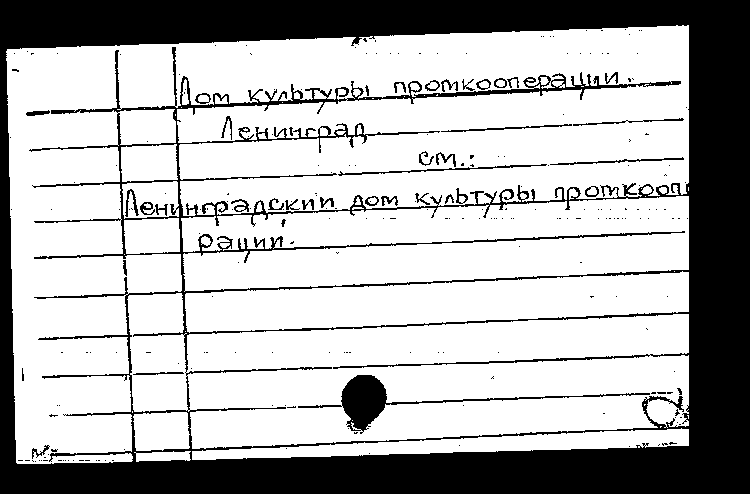 Дом культуры промкооперации.
Ленинград
см.:
Ленинградский дом культуры промкооп
рации.